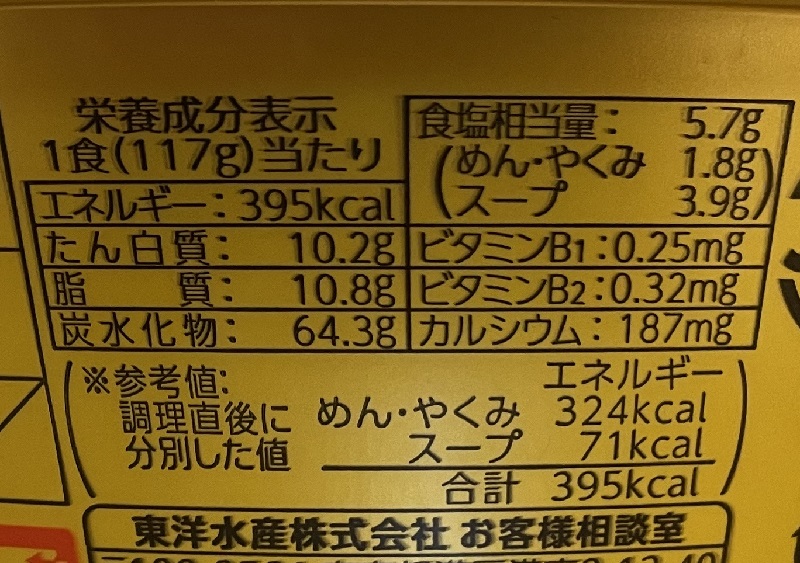 栄養成分表示
1食(117g)当たり
エネルギー:395kcal
たん白質: 10.2g
脂 質: 10.8g
炭水化物: 64.3g
食塩相当量: 5.7g
(めん・やくみ 1.8g
スープ 3.9g)
ビタミンB1:0.25mg
ビタミンB2:0.32mg
カルシウム:187mg
(※参考値:
調理直後に
分別した値
エネルギー
めん・やくみ 324kcal
スープ 71kcal
合計 395kcal)
東洋水産株式会社 お客様相談室